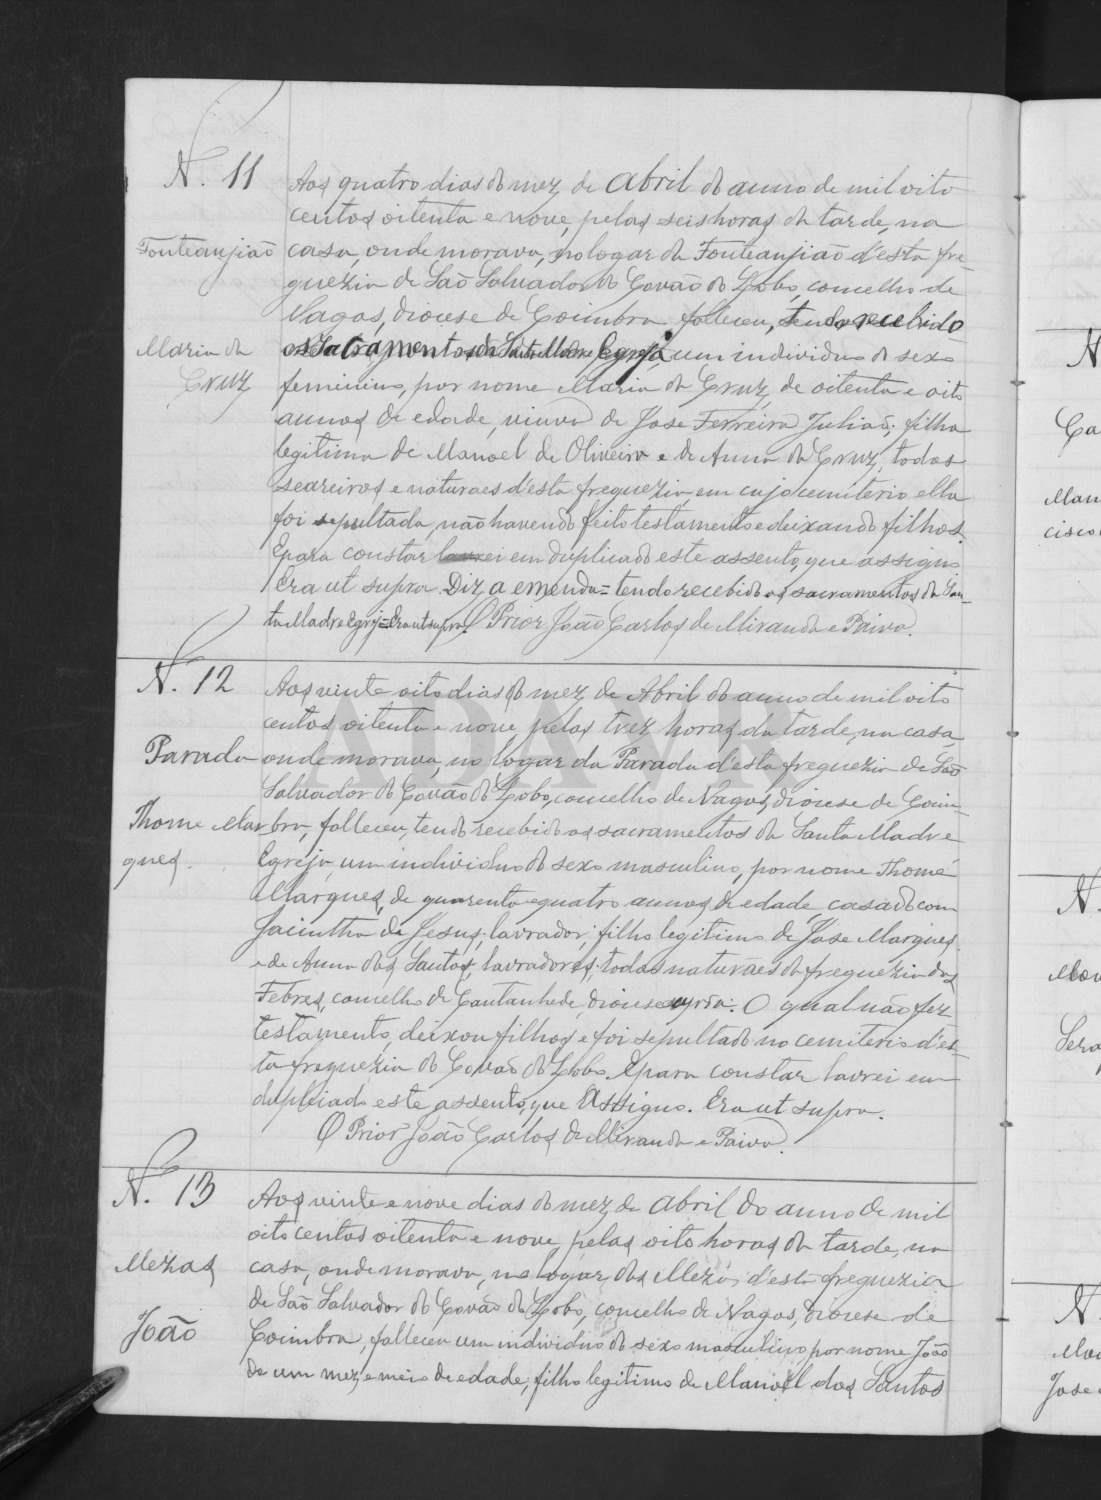 N. 11
Fonteanjiaõ
Maria da
Cruz
Aos quatro dias do mez de Abril do anno de mil oito
centos oitenta e nove, pelas seis horas da tarde, na
casa, onde morava, no logar da Fonteanjiaõ d'esta fre-
guezia de São Salvador do Covão do Lobo, concelho de
Vagos, diocese de Coimbra falleceu, tendo recebido
os Sacramentos da Santa Madre Egreja, um individuo do sexo
feminino, por nome Maria da Cruz, de oitenta e oito
annos de edade, viuva de Jose Ferreira Julião; filha
legitima de Manoel de Oliveira e de Anna da Cruz, todos
seareiros e naturaes d'esta freguezia em cujo cemiterio ella
foi sepultada, não havendo feito testamento e deixando filhos.
E para constar lavrei em duplicado este assento, que assigno
Era ut supra. Diz a emenda = tendo recebido os sacramentos da San-
ta Madre Egrej = Era ut supra. O Prior João Carlos de Miranda e Paiva.
N. 12
Parada
Thome Mar
ques.
Aos vinte oito dias do mez de Abril do anno de mil oito
centos oitenta e nove pelas trez horas da tarde, na casa,
onde morava, no logar da Parada d'esta freguezia de São
Salvador do Covão do Lobo, concelho de Vagos, diocese de Coim-
bra, falleceu, tendo recebido os sacramentos da Santa Madre
Egreja, um individuo do sexo masculino, por nome Thomé
Marques, de quarenta e quatro annos de edade, casado com
Jacintha de Jesus, lavrador; filho legitimo de Jose Marques
e de Anna dos Santos, lavradores; todos naturaes da freguezia dos
Febres, concelho de Cantanhede, diocese supra. O qual não fez
testamento, deixou filhos e foi sepultado no cemiterio d'es-
ta freguezia do Covão do Lobo. E para constar lavrei em
duplicado este assento, que Assigno. Era ut supra.
O Prior João Carlos de Miranda e Paiva.
N. 13
Mezas
João
Aos vinte e nove dias do mez de Abril do anno de mil
oito centos oitenta e nove, pelas oito horas da tarde, na
casa, onde morava, no logar das Mezas d'esta freguezia
de São Salvador do Covão do Lobo, concelho de Vagos, diocese de
Coimbra, falleceu um individuo do sexo masculino, por nome João
de um mez e meio de edade, filho legitimo de Manoel dos Santos
ADAV
N
Ca
Man
cisco
N.
Serv
N.
Jose